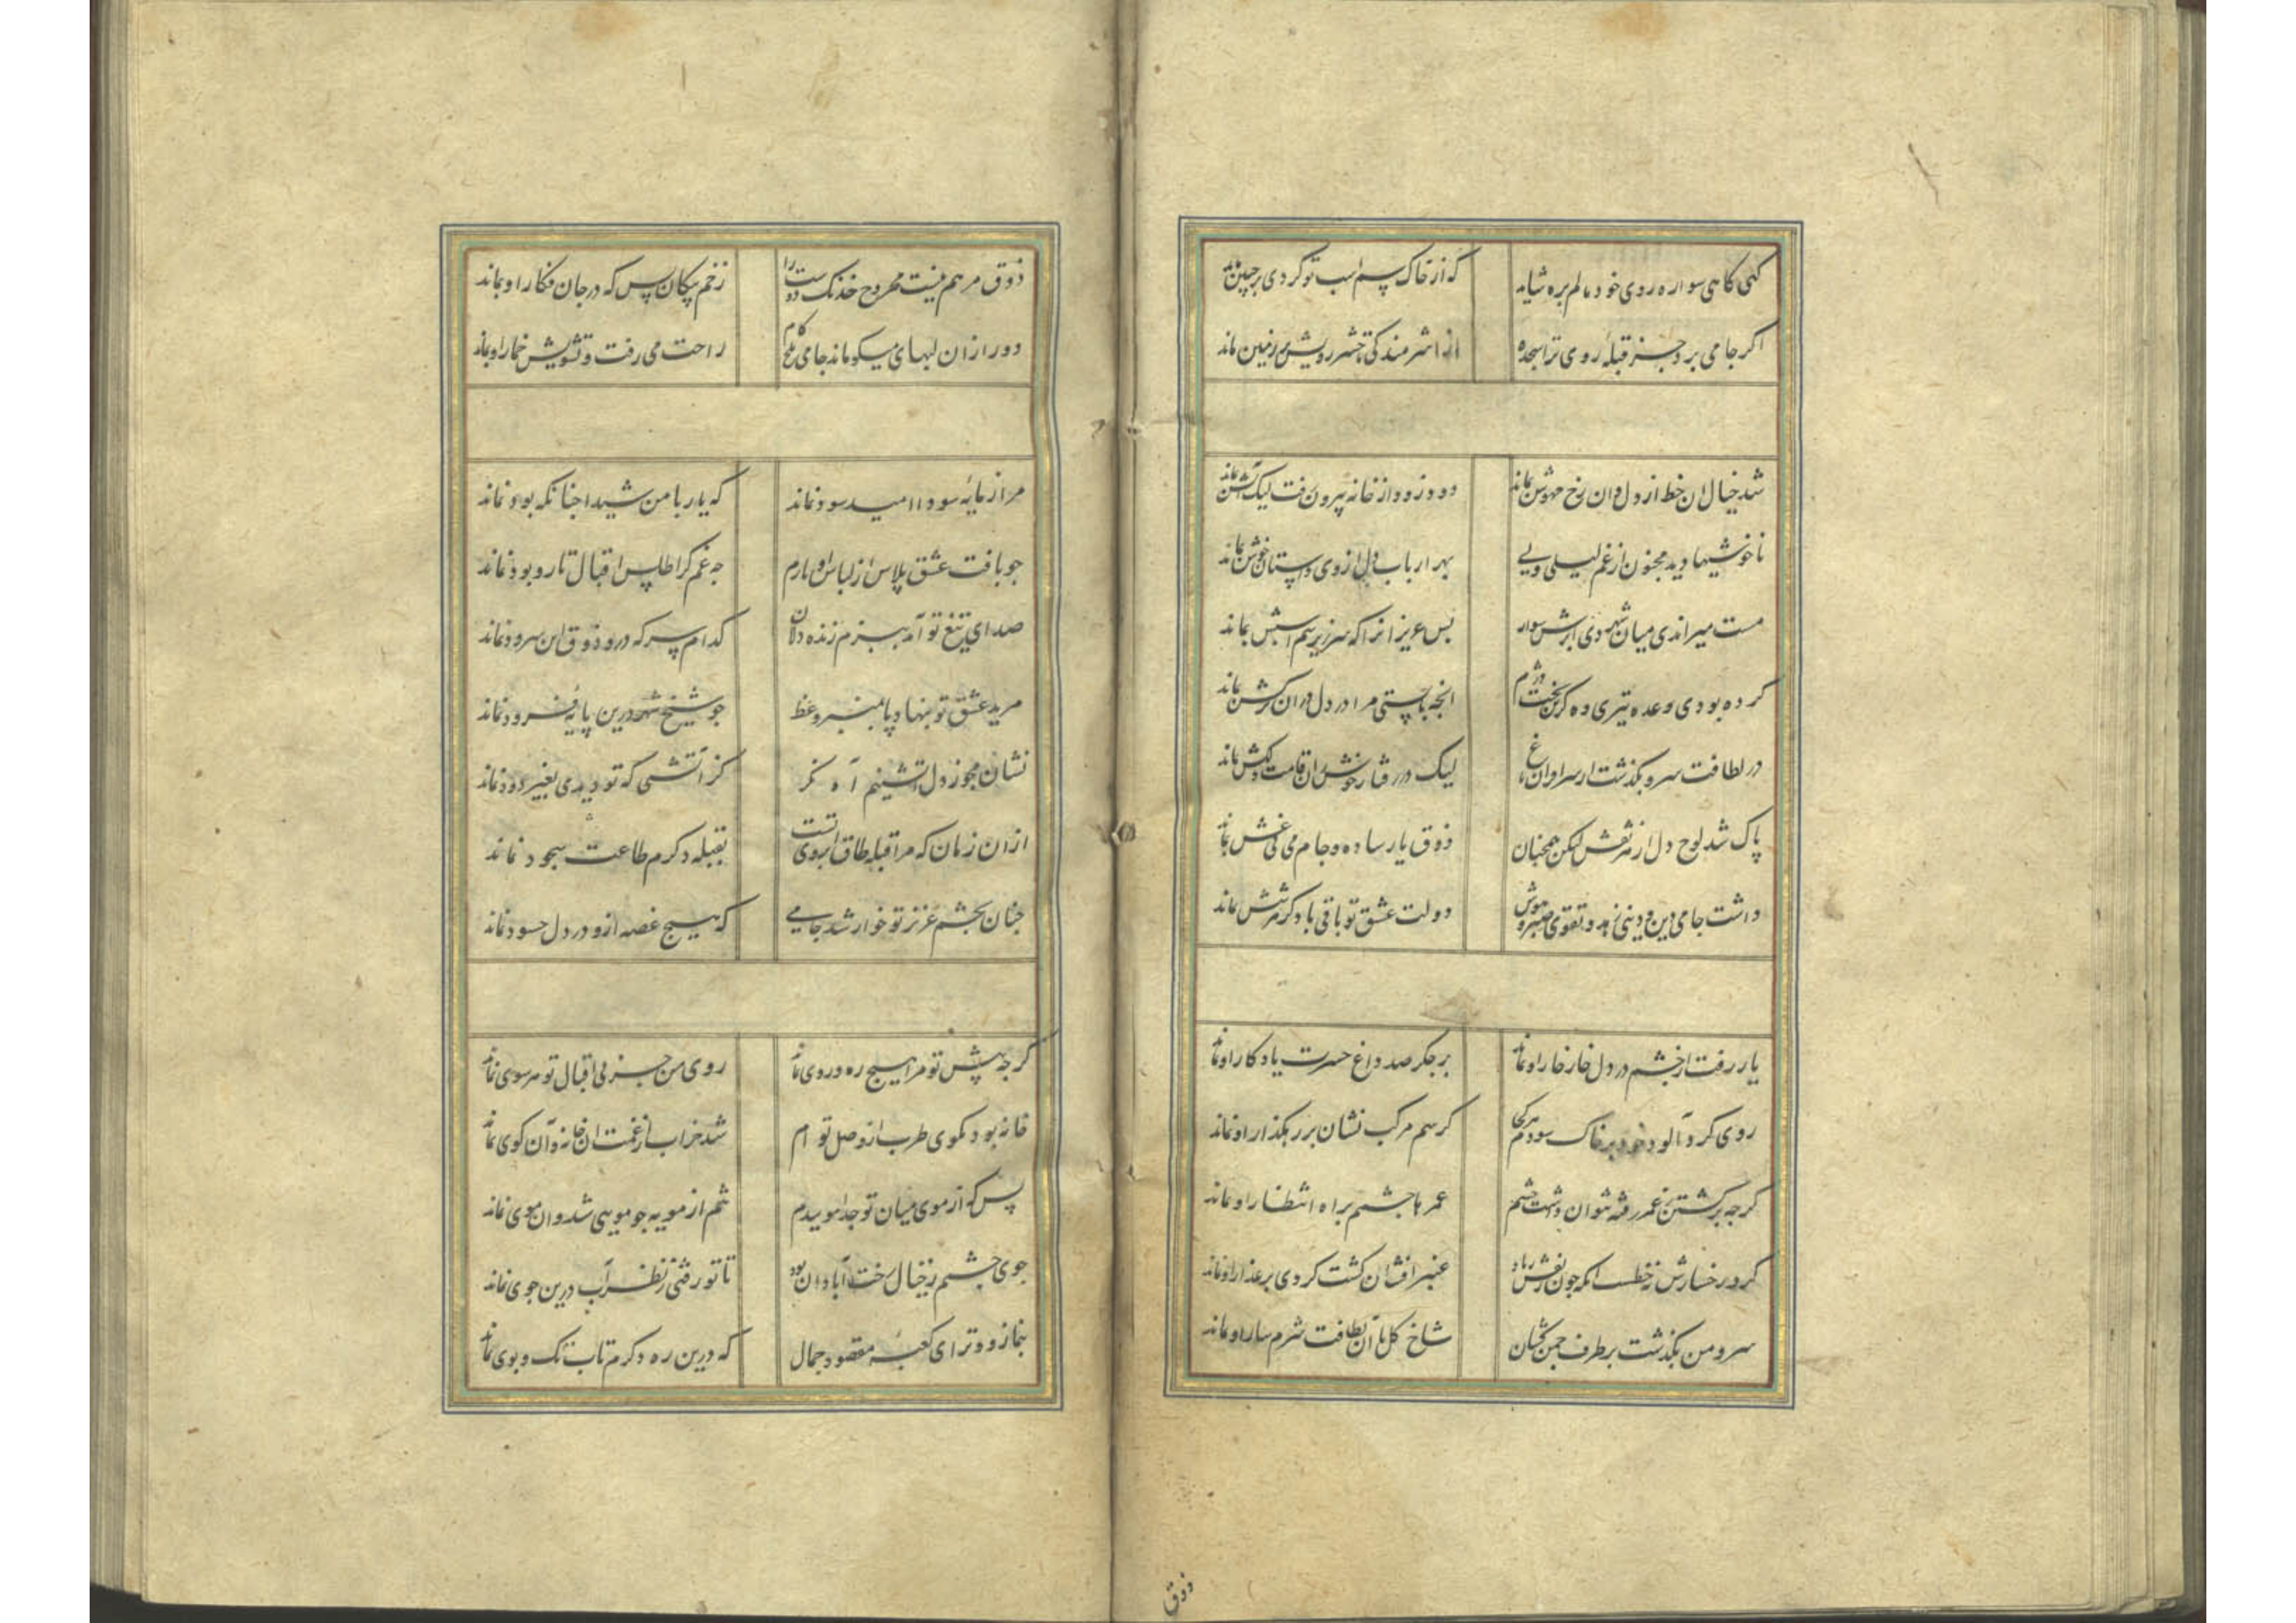 کهی کاهی سواره روی خود مالم بره شاید
که از خاک سم اسب تو کردی بر جبین ماند
اکر جامی برد جز قبلهٔ روی ترا سجده
از شرمندکی تا حشر رویش بر زمین ماند
شد خیال ان خط از دل وان رخ مهوش بماند
دود زود از خانه بیرون رفت لیک آتش بماند
ناخوشیها دید مجنون از غم لیلی ولی
بهر ارباب دل از وی داستان خوش بماند
مست میراندی میان شهر دی ابرش سوار
بس عزیزانرا که سر زیر سم ابرش بماند
کرده بودی وعده تیری وه کز بخت دژم
انجه بایستی مرا در دل دران ترکش بماند
در لطافت سرو بکذشت از سر او ان باغ
لیک در رفتار خوش زان قامت دلکش بماند
پاک شد لوح دل از هر نقش لیکن همچنان
ذوق یار ساده و جام می بی غش بماند
داشت جامی دین و دینی زهد و تقوی صبر و هوش
دولت عشق تو باقی باد کز هر شش بماند
یار رفت از چشم در دل خار خار او بماند
بر جکر صد داغ حسرت یادکار او بماند
روی کرد آلود خود بر خاک سودم هر کجا
کز سم مرکب نشان بر رهکذار او بماند
کرجه برکشتن ز عمر رفته نتوان داشت چشم
عمرها چشمم براه انتظار او بماند
کرد رخسارش نه خطست انکه جون نقش زباد
عنبر افشان کشت کردی بر عذار او بماند
سرو من بکذشت بر طرف جمن کشان
شاخ کل با آن لطافت شرمسار او بماند
ذوق
ذوق مرهم نیست مجروح خدنک دوست را
زخم پیکان بس که در جان فکار او بماند
دور ازان لبهای میکون ماند جامی تلخ کام
راحت می رفت و تشویش خمار او بماند
مرا ز مایهٔ سودا امید سود نماند
که یار با من شیدا جنانکه بود نماند
جو بافت عشق پلاس از لباس او بارم
جه غم کر اطلس اقبال تار و بود نماند
صدای تیغ تو آمد ببزم زنده دلان
کدام سر که درو ذوق این سرود نماند
مرید عشق تو ننهاد پا بمنبر وعظ
جو شیخ شهر درین پایهٔ فرود نماند
نشان مجو ز دل آتشینم آه مکر
کز آتشی که تو دیدی بغیر دود نماند
ازان زمان که مرا قبله طاق ابروی تست
بقبله دکرم طاعت سجود نماند
جنان بچشم عزیز تو خوار شد جامی
که هیج غصه ازو در دل حسود نماند
کرجه پیش تو مرا هیج ره و روی نماند
روی من جز پی اقبال تو هر سوی نماند
خانه بود بکوی طرب از وصل تو ام
شد خراب از غمت ان خانه و آن کوی نماند
بس که از موی میان تو جدا موییدم
تنم از مویه جو مویی شد و ان موی نماند
جوی چشمم ز خیال رخت آبادان بود
تا تو رفتی ز نظر آب درین جوی نماند
بنما زود تر ای کعبهٔ مقصود جمال
که درین ره دکرم تاب تک و پوی نماند